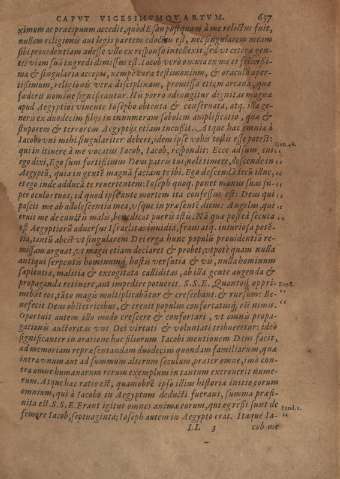 CAPUT VIGESIMUMQUARTUM. 637
ximum ac præcipuum accedit, quod Esau postquam à me relictus fuit,
nullam religionis aut legis partem edoctus est, nec singularem meam
sibi providentiam adesse ullo ex responso intellexit, sed ut cetera gen-
tes viam suã ingredi dimissus est. Iacob verò omnia ex me est felicissi-
ma & singularia accepit, nempe vera testimonium, & oracula aper-
tissimum, religionis veræ disciplinam, promissa etiam arcana, quæ
fœderis nomine significantur. His porrò adiungitur dignitas magna
apud Aegyptios vivente Iosepho obtenta & conservata, atq. illa gene-
ris ex duodecim filiis in innumeram sobolem amplificatio, quæ &
stuporem & terrorem Aegyptiis etiam incussit. Atque hæc omnia à
Iacobo uni mihi singulariter deberi, idem ipse vobis testis esse potest.
qui in itinere à me vocatus Iacob, Iacob, respondit: Ecce adsum, cui
ego dixi, Ego sum fortissimus Deus patris tui, noli timere, descende in
Aegyptũ, quia in gentẽ magnã faciam te ibi. Ego descendã tecũ illuc,
et ego inde adducã te revertentem: Ioseph quoq. ponet manus suas su-
per oculos tuos, id quod ipse ante mortem ita confessus est: Deus qui
pascit me ab adolescentia mea, usque in præsentẽ diem: Angelus, qui
eruit me de cunctis malis, benedicat pueris istis. Nã quæ postea secuta
est Aegyptiorũ adversus Israelitas invidia, fraus atq. iniuriosa potẽ-
tia, tantũ abest ut singularem Dei erga hunc populũ providentia re-
missam arguat, ut magis etiam declaret & probet, utpote quam nulla
antiqui serpentis hominumq. hostis versatia & vis, nulla hominum
sapientia, malitia & excogitata calliditas, ab illa gente augenda &
propaganda retinere aut impedire potuerit. S.S.E. Quantoq. oppri-
mebãt eos, tãto magis multiplicabãtur & crescebant. & rursum: Be-
nefecit Deus obstetricibus, & crevit populus confortatusq. est nimis.
Oportuit autem illo modo crescere & confortari, ut omnis propa-
gationis auctoritas uni Dei virtuti & voluntati tribueretur: ideò
significanter in oratione hac filiorum Iacobi mentionem Deus facit,
ad memoriam repræsentandam duodecim quondam familiarum, quæ
intra unum aut ad summum alterum sæculum, præter omnẽ, imò con-
tra omne humanarum rerum exemplum in tantum excreverit nume-
rum. Atque hæc ratio est, quamobrẽ ipso illius historiæ initio eorum
omnium, qui à Iacobo in Aegyptum deducti fuerant, summa præsi-
nita est. S.S.E. Erant igitur omnes animæ eorum, quæ egressi sunt de
femore Iacob, septuaginta: Ioseph autem in Aegypto erat. Itaque Ia-
LL 3 cob me